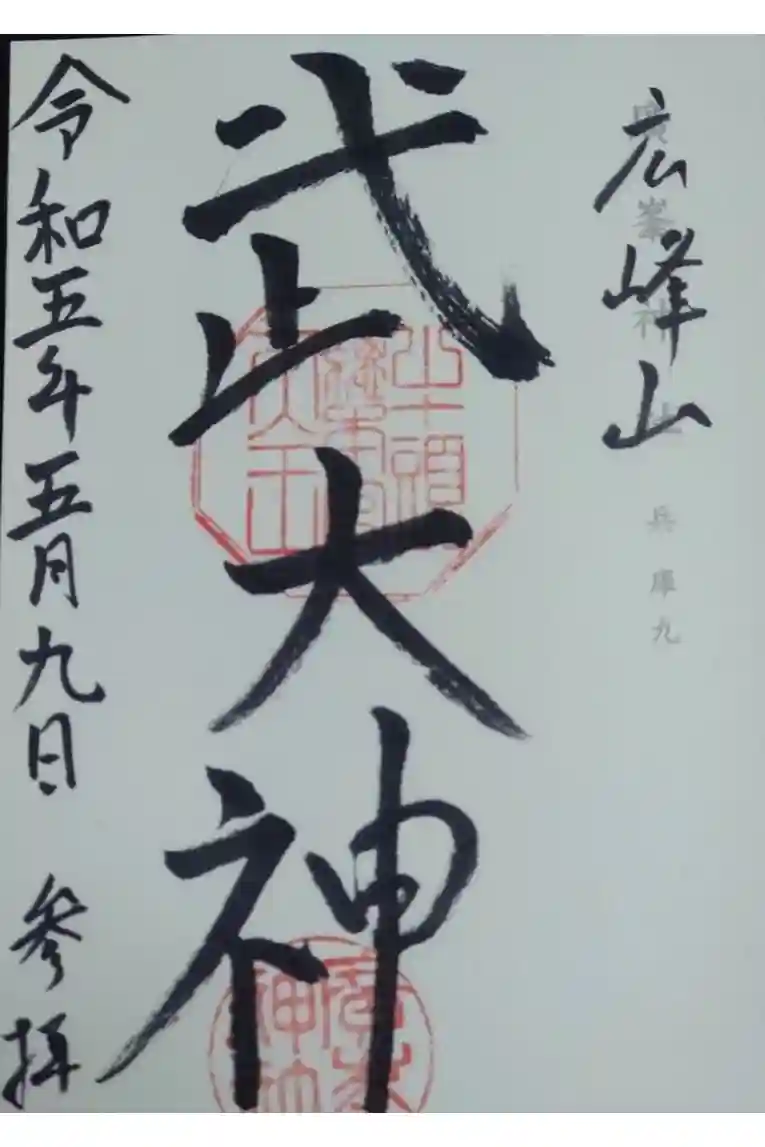 広峰山
廣峯神社 兵庫九
武大神
令和五年五月九日 参拝